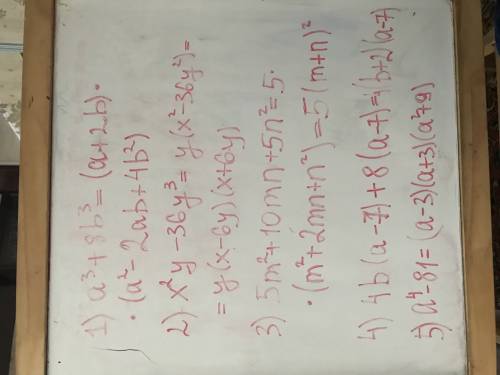 1) a³+8b³=(a+2b)·
·(a²-2ab+4b²)
2) x²y-36y³=y(x²-36y²)=
=y(x-6y)(x+6y)
3) 5m²+10mn+5n²=5·
·(m²+2mn+n²)=5(m+n)²
4) 4b(a-7)+8(a-7)=4(b+2)(a-7)
5) a⁴-81=(a-3)(a+3)(a²+9)